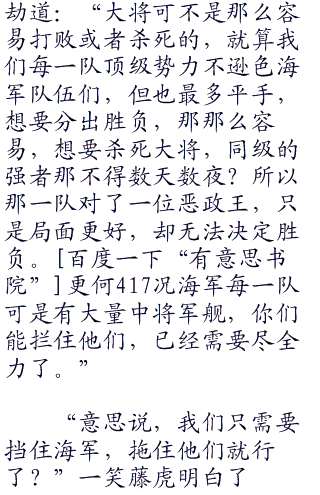 劫道：“大将可不是那么容
易打败或者杀死的，就算我
们每一队顶级势力不逊色海
军队伍们，但也最多平手，
想要分出胜负，那那么容
易，想要杀死大将，同级的
强者那不得数天数夜？所以
那一队对了一位恶政王，只
是局面更好，却无法决定胜
负。[百度一下“有意思书
院”]更何417况海军每一队
可是有大量中将军舰，你们
能拦住他们，已经需要尽全
力了。”
“意思说，我们只需要
挡住海军，拖住他们就行
了？”一笑藤虎明白了